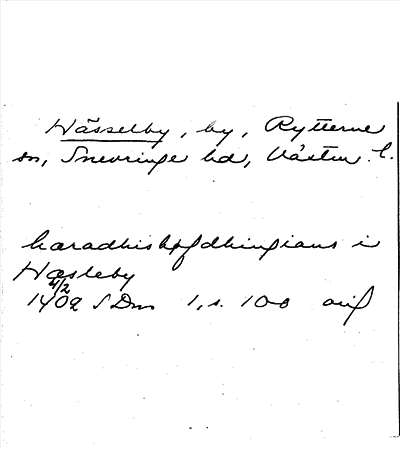 Hässelby, by, Rytterne
sn, Snevringe hd, Västm. l.
haradhishöfdhingians i
Hæsleby
4/2
1402 SDns 1, s. 100 avs